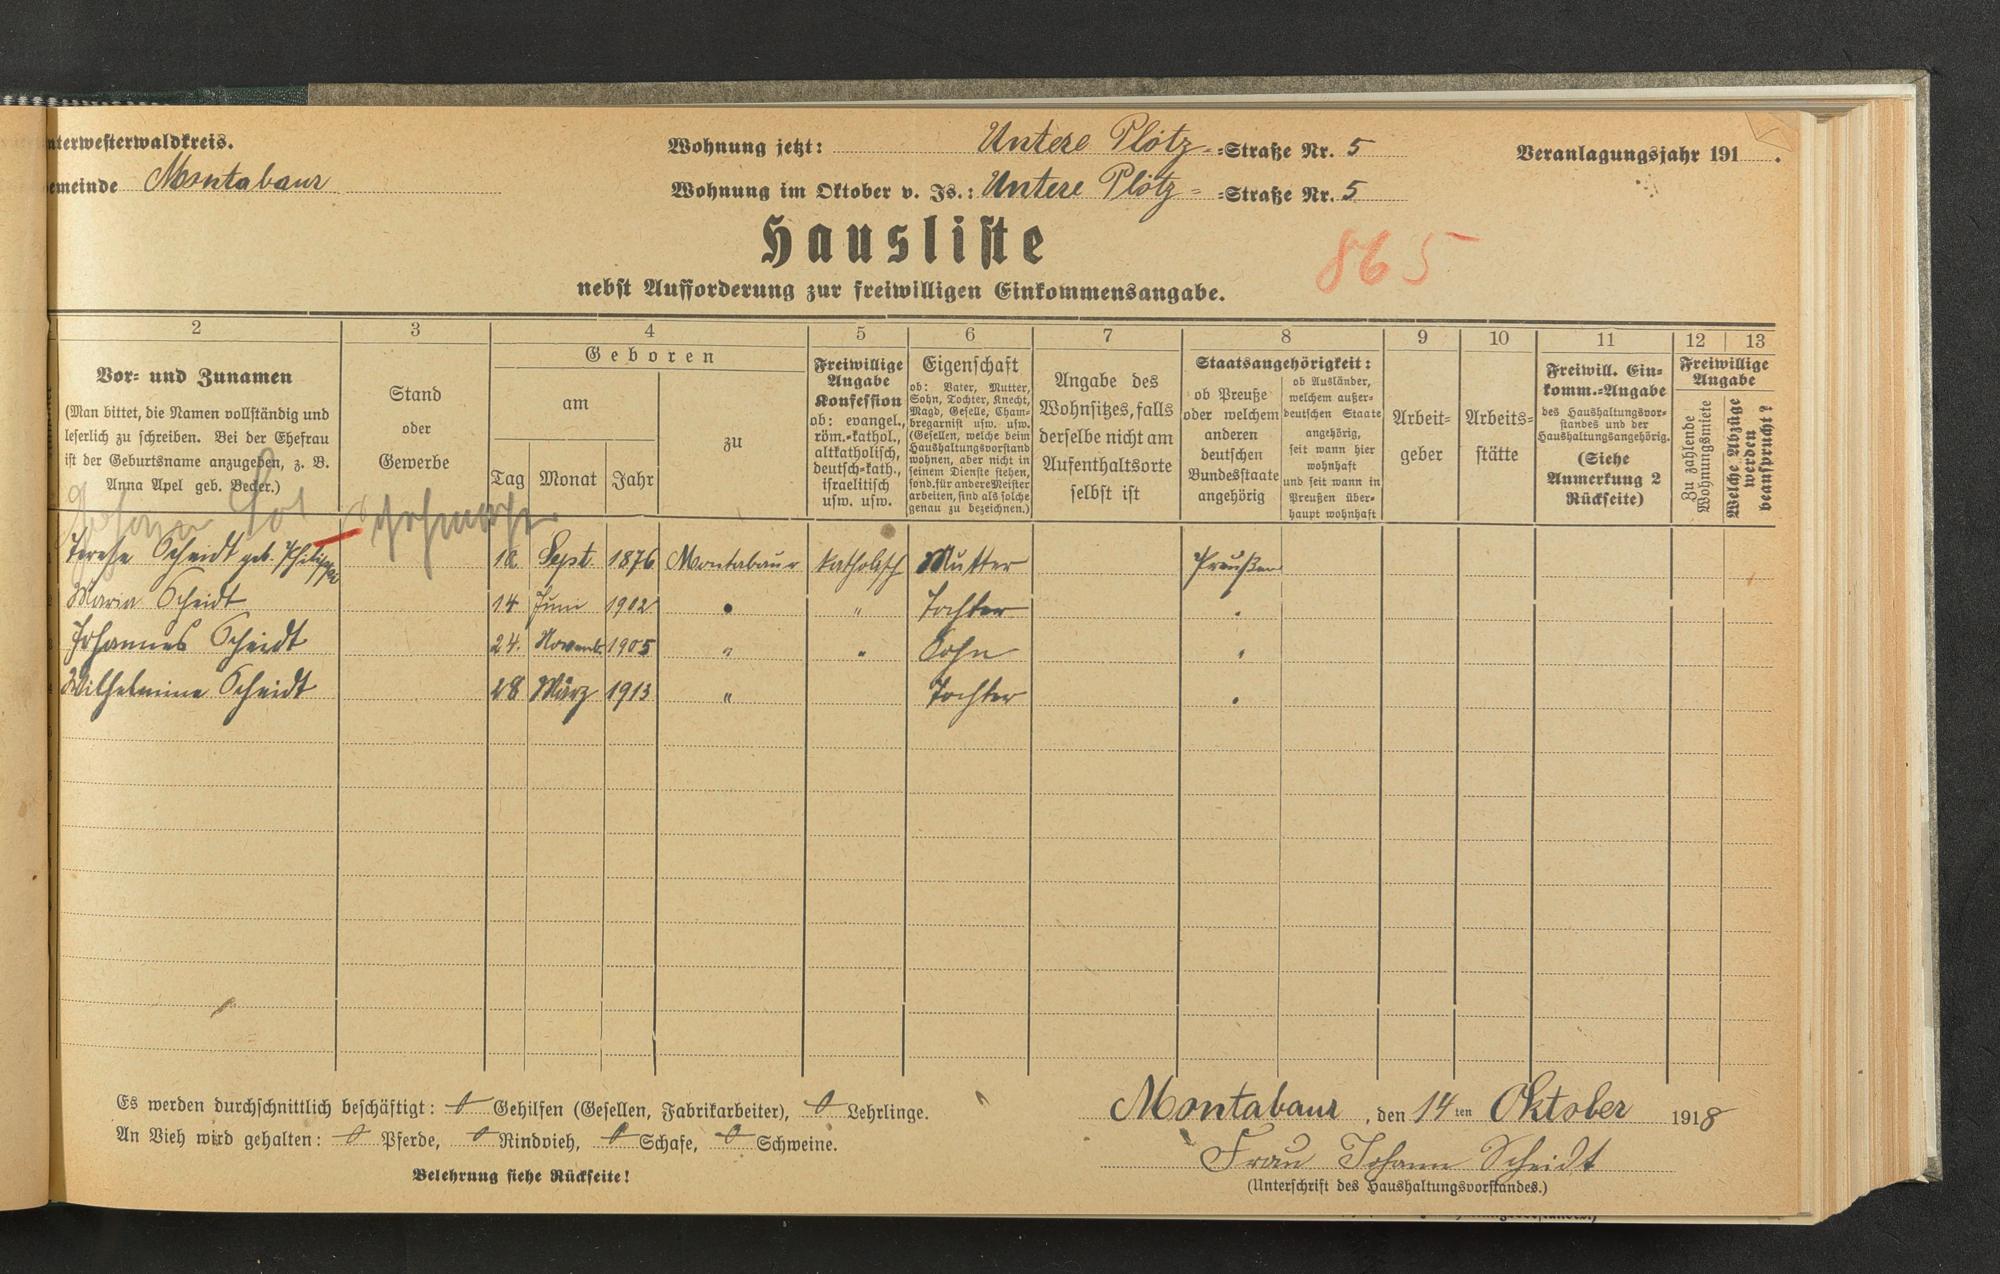 nterwesterwaldkreis.
emeinde Montabaur
Wohnung jetzt: Untere Plötz- =Straße Nr. 5
Wohnung im Oktober v. Js.: Untere Plötz= =Straße Nr. 5
Veranlagungsjahr 191 .
Hausliste
865
nebst Aufforderung zur freiwilligen Einkommensangabe.
2 3 4 5 6 7 8 9 10 11 12 13
Vor= und Zunamen
(Man bittet, die Namen vollständig und
leserlich zu schreiben. Bei der Ehefrau
ist der Geburtsname anzugeben, z. B.
Anna Apel geb. Becker.)
Stand
oder
Gewerbe
Geboren
am
Tag Monat Jahr
zu
Freiwillige
Angabe
Konfession
ob: evangel.,
röm.=kathol.,
altkatholisch,
deutsch=kath.,
israelitisch
usw. usw.
Eigenschaft
ob: Vater, Mutter,
Sohn, Tochter, Knecht,
Magd, Geselle, Cham=
bregarnist usw. usw.
(Gesellen, welche beim
Haushaltungsvorstand
wohnen, aber nicht in
seinem Dienste stehen,
sond. für andere Meister
arbeiten, sind als solche
genau zu bezeichnen.)
Angabe des
Wohnsitzes, falls
derselbe nicht am
Aufenthaltsorte
selbst ist
Staatsangehörigkeit:
ob Preuße
oder welchem
anderen
deutschen
Bundesstaate
angehörig
ob Ausländer,
welchem außer=
deutschen Staate
angehörig,
seit wann hier
wohnhaft
und seit wann in
Preußen über=
haupt wohnhaft
Arbeit=
geber
Arbeits=
stätte
Freiwill. Ein=
komm.=Angabe
des Haushaltungsvor=
standes und der
Haushaltungsangehörig.
(Siehe
Anmerkung 2
Rückseite)
Freiwillige
Angabe
Zu zahlende
Wohnungsmiete
Welche Abzüge
werden
beansprucht?
Johann
Terese Scheidt geb. Philippi Sept. 1876 Montabaur katholisch Mutter Preußen
Maria Scheidt 14 Juni 1902 " " Tochter "
Johannes Scheidt 24. Novemb. 1905 " " Sohn "
Wilhelmine Scheidt 28 März 1913 " Tochter "
Es werden durchschnittlich beschäftigt: 0 Gehilfen (Gesellen, Fabrikarbeiter), 0 Lehrlinge.
An Vieh wird gehalten: 0 Pferde, 0 Rindvieh, 0 Schafe, 0 Schweine.
Belehrung siehe Rückseite!
Montabaur, den 14ten Oktober 1918
Frau Johann Scheidt
(Unterschrift des Haushaltungsvorstandes.)